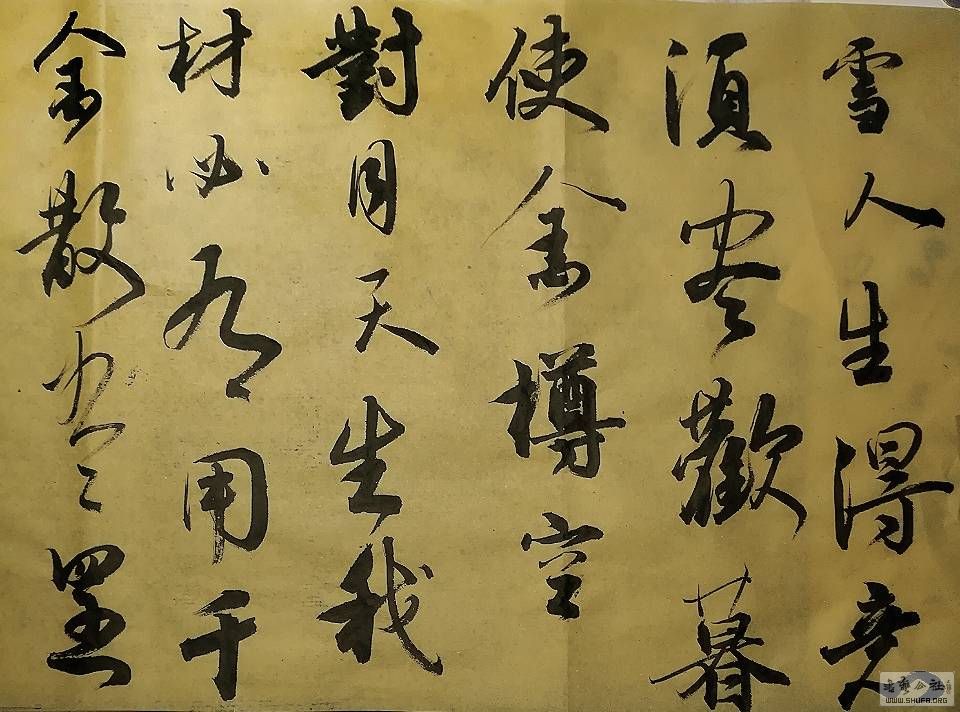 雪人生得意
須盡歡暮
使金樽空
對月天生我
材必有用千
金散盡還
WWW.SHUFA.ORG